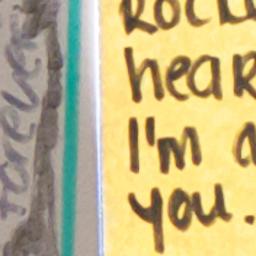 forever
hear
I'm a
you.